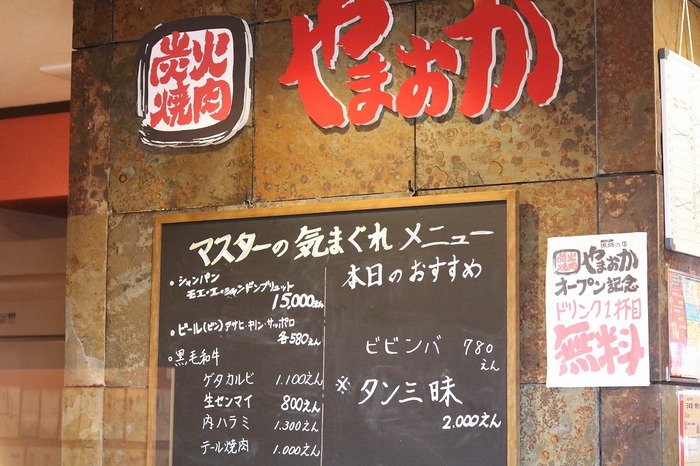 炭火
焼肉
やまおか
マスターの気まぐれメニュー
・シャンパン
モエ・エ・シャンドンブリュット
15,000えん
・ビール(ビン)アサヒ・キリン・サッポロ
各580えん
・黒毛和牛
ゲタカルビ 1.100えん
生センマイ 800えん
内ハラミ 1.300えん
テール焼肉 1.000えん
本日のおすすめ
ビビンバ 780えん
※タン三昧
2.000えん
炭火
焼肉
やまおか
オープン記念
ドリンク1杯目
無料